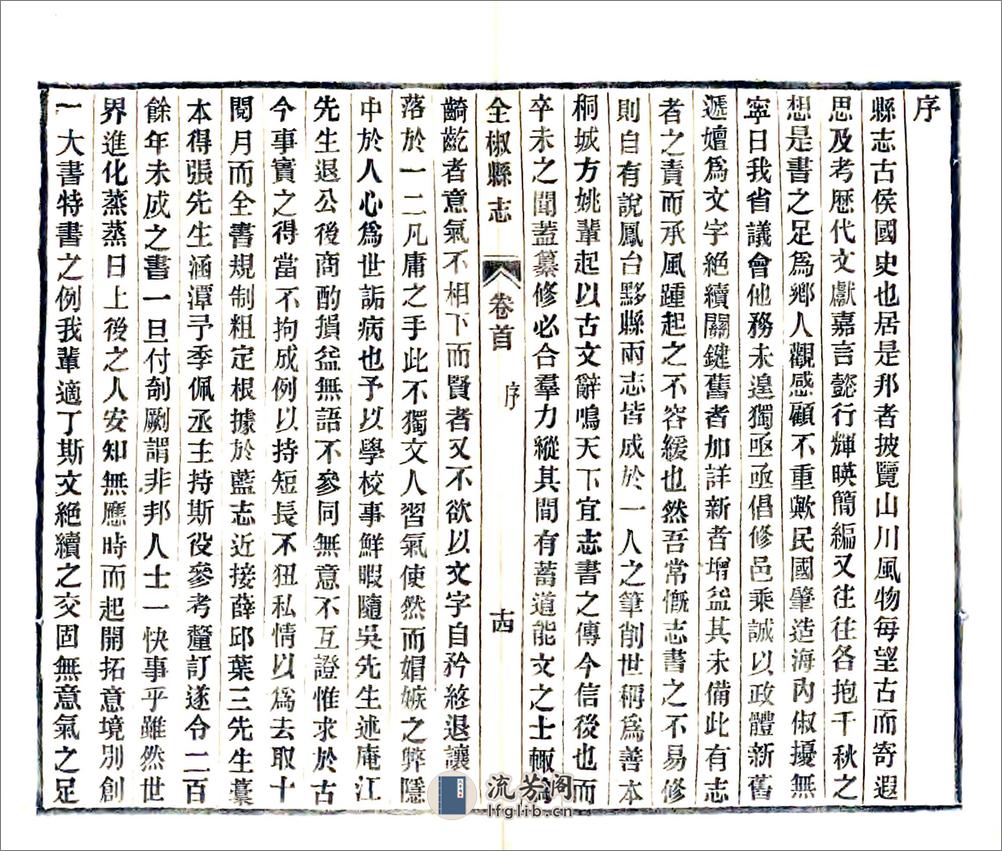 序
縣志古侯國史也居是邦者披覽山川風物每望古而寄遐
思及考歷代文獻嘉言懿行輝暎簡編又往往各抱千秋之
想是書之足爲鄉人觀感顧不重歟民國肇造海內俶擾無
寧日我省議會他務未遑獨亟亟倡修邑乘誠以政體新舊
遞嬗爲文字絕續關鍵舊者加詳新者增益其未備此有志
者之責而承風踵起之不容緩也然吾常慨志書之不易修
則自有說鳳台黟縣兩志皆成於一人之筆削世稱爲善本
桐城方姚輩起以古文辭鳴天下宜志書之傳今信後也而
卒未之聞蓋纂修必合羣力縱其間有蓄道能文之士輒爲
全椒縣志
卷首
序
十四
齮齕者意氣不相下而賢者又不欲以文字自矜終退讓
落於一二凡庸之手此不獨文人習氣使然而娼嫉之弊隱
中於人心爲世詬病也予以學校事鮮暇隨吳先生述庵江
先生退公後商酌損益無語不參同無意不互證惟求於古
今事實之得當不拘成例以持短長不狃私情以爲去取十
閱月而全書規制粗定根據於藍志近接薛邱葉三先生藁
本得張先生涵潭予季佩丞主持斯役參考釐訂遂令二百
餘年未成之書一旦付剞劂謂非邦人士一快事乎雖然世
界進化蒸蒸日上後之人安知無應時而起開拓意境別創
一大書特書之例我輩適丁斯文絕續之交固無意氣之足
流芳阁
lfglib.cn